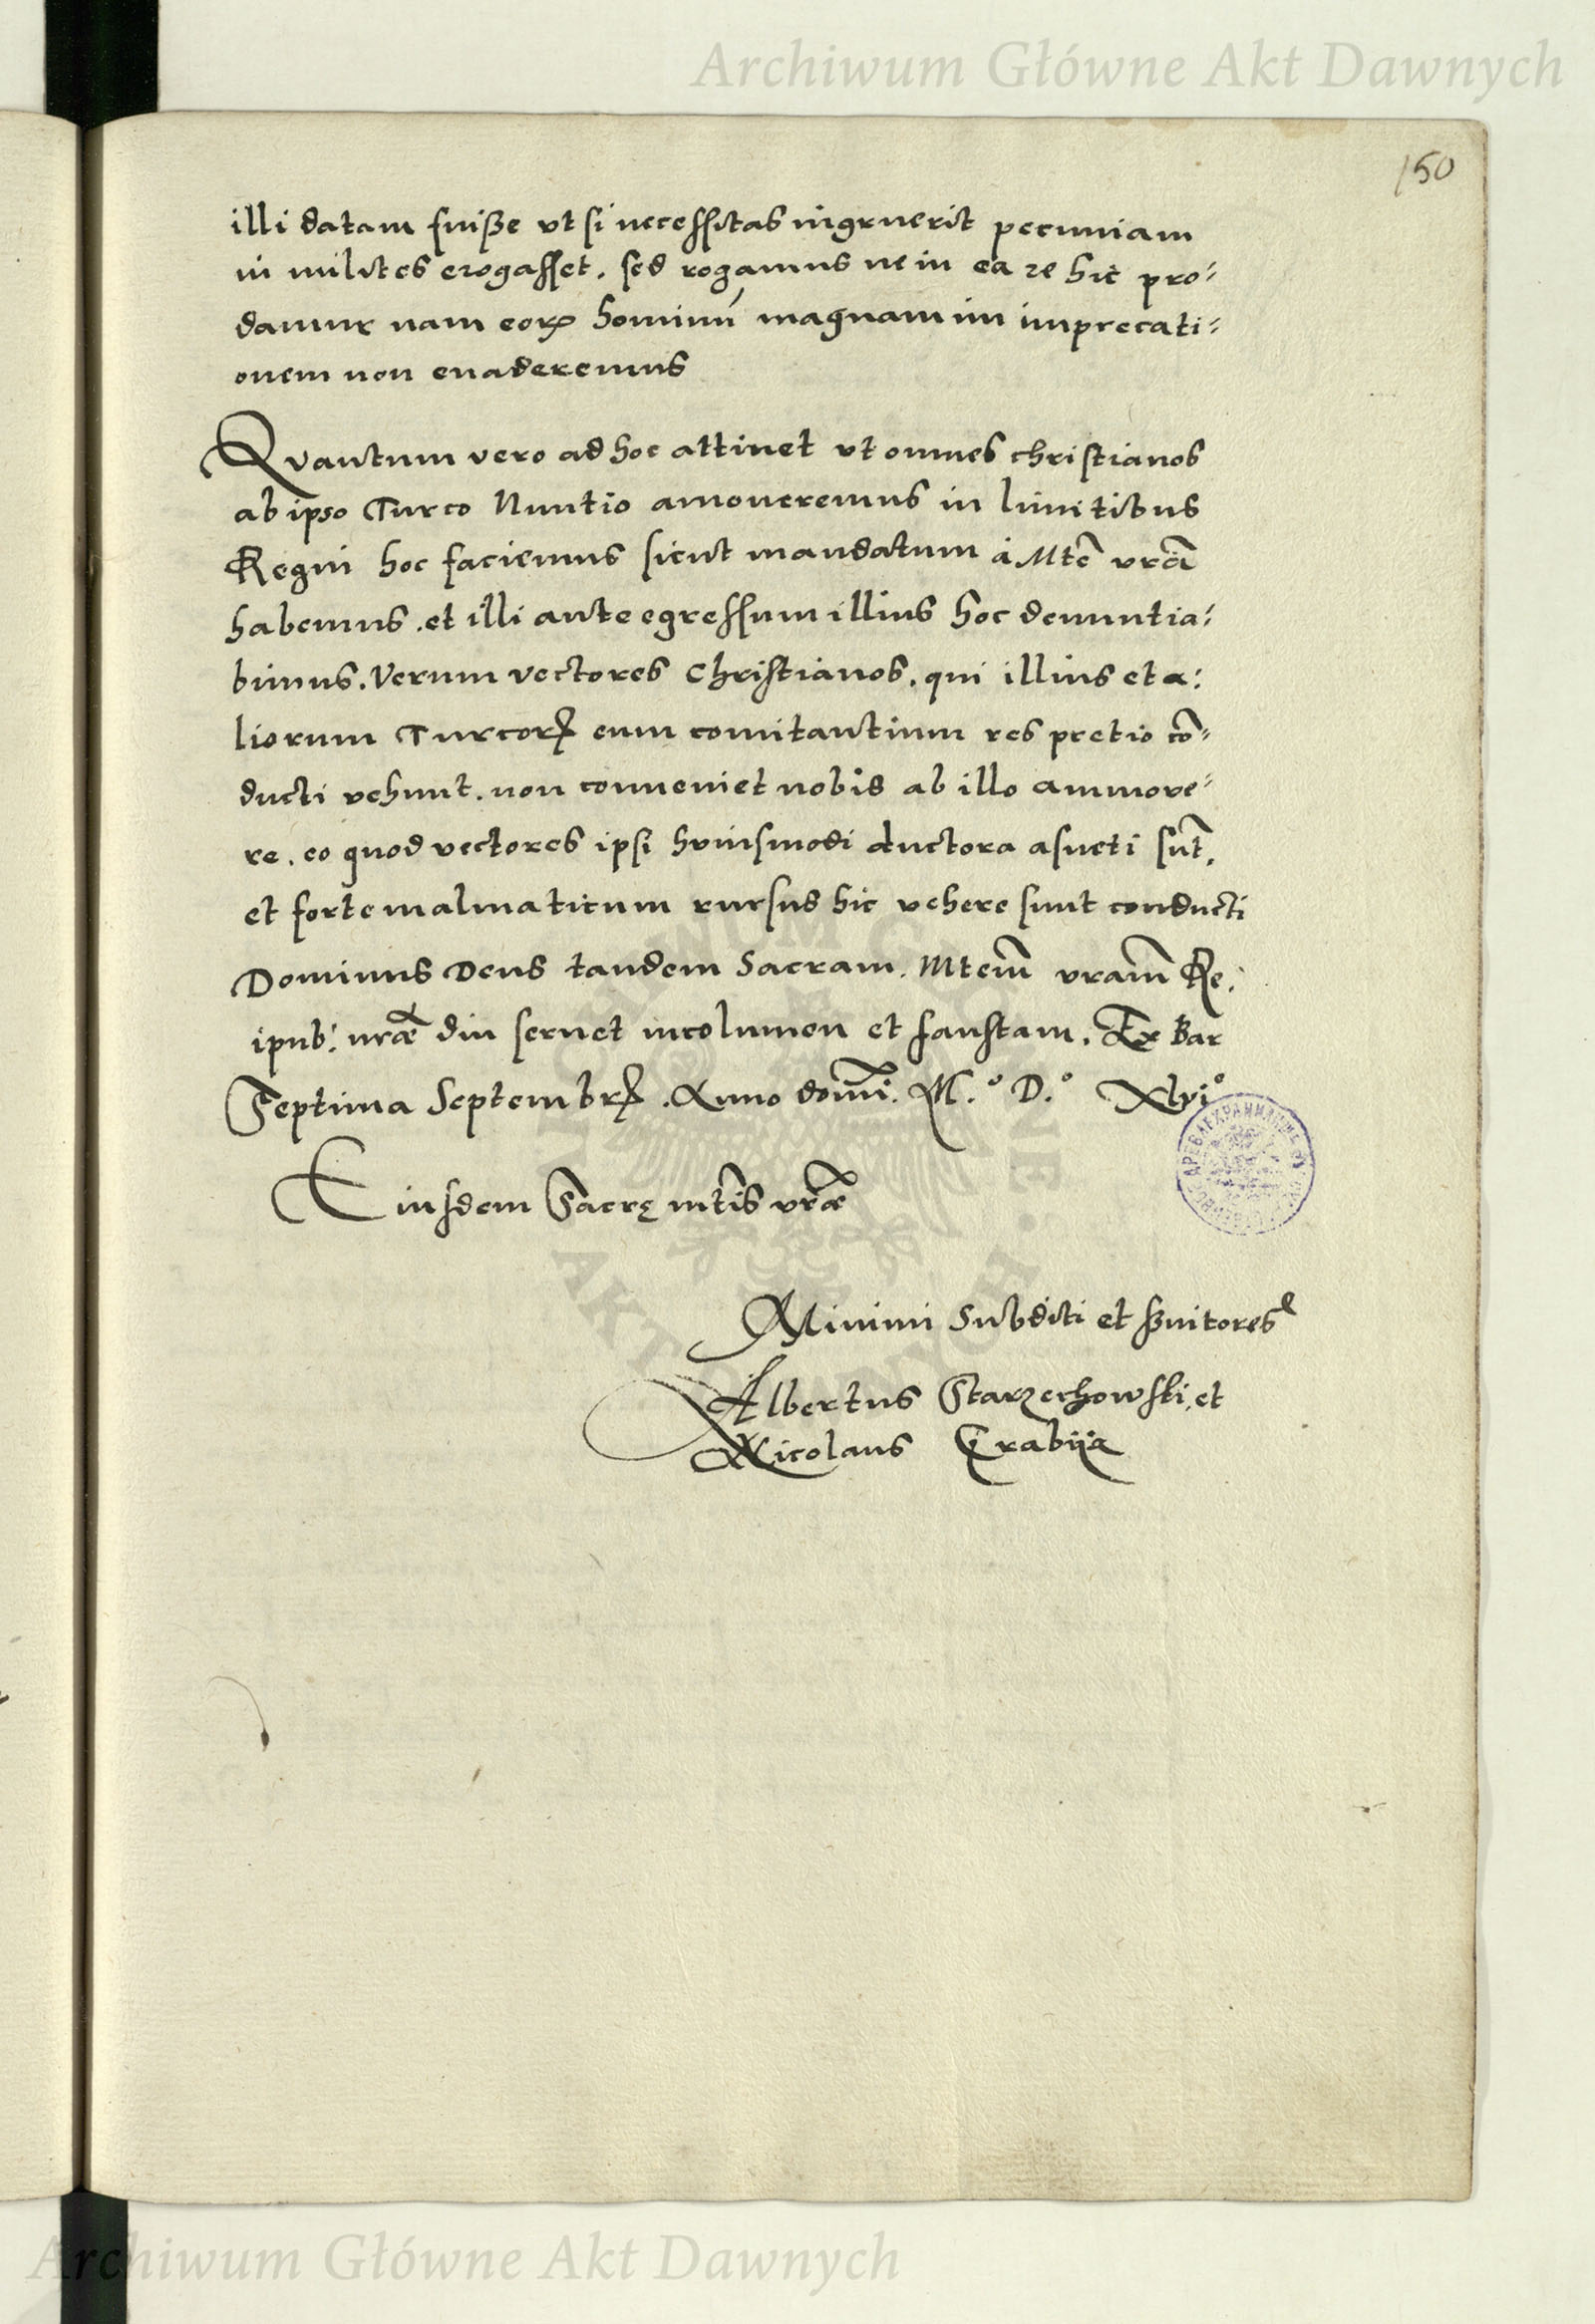 Archiwum Główne Akt Dawnych
150
illi datam fuiße vt si necessitas ingruerit pecuniam
in milites erogasset. sed rogamus ne in ea re hic pro-
damur nam eorꝝ hominū magnam im imprecati-
onem non euaderemus
Quantum vero ad hoc attinet vt omnes christianos
ab ipso Turco Nuntio amoueremus in limitibus
Regni hoc faciemus sicut mandatum à Mte vrā
habemus. et illi ante egressum illius hoc denuntia-
bimus. Verum vectores Christianos. qui illius et a-
liorum Turcorꝝ eum comitantium res pretio cō-
ducti vehunt. non conueniet nobis ab illo ammove-
re. eo quod vectores ipsi huiusmodi ductora asueti sūt.
et forte malmaticum rursus hic vehere sunt conducti
Dominus Deus tandem Sacram. Mtem vram Re-
ipub: nræ diu seruet incolumen et faustam. Ex Bar
Septima Septembrꝝ. Anno domī. M.º D.º Xlviº
Eiusdem Sacrę mtis vræ
Minimi Subditi et Suitores
Albertus Starzechowski, et
Nicolaus Crabija
Archiwum Główne Akt Dawnych